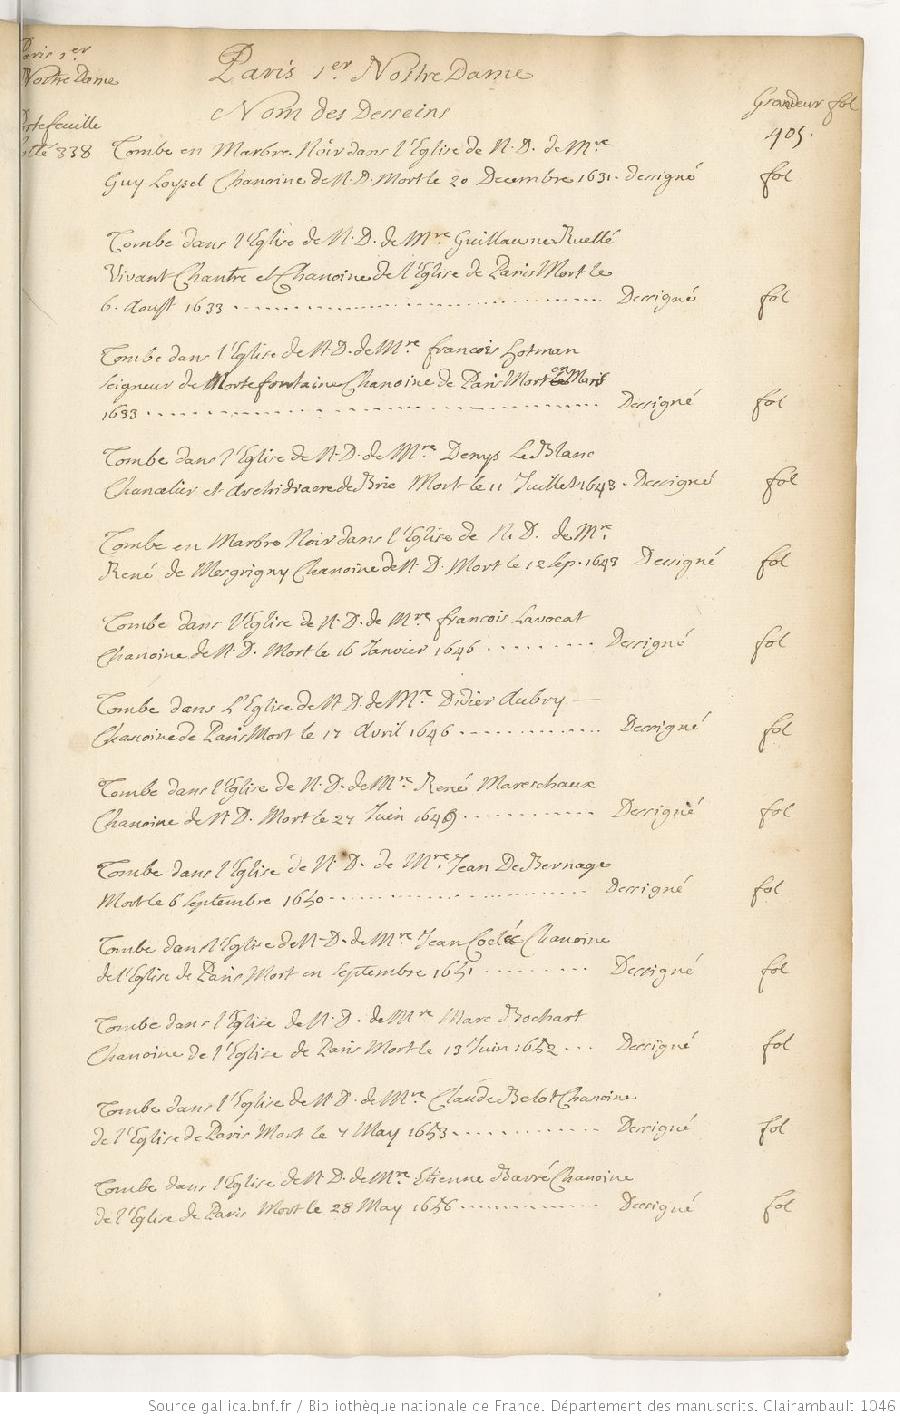 Paris 1er
Nostre Dame
Paris 1er Nostre Dame
Nom des Desseins
Grandeur fol
405.
portefeuille
cotté 338
Tombe en Marbre Noir dans l'Eglise de N. D. de Mre
Guy Loysel Chanoine de N. D. Mort le 20 Decembre 1631. dessigné fol
Tombe dans l'Eglise de N. D. de Mre Guillaume Ruellé
Vivant Chantre et Chanoine de l'Eglise de Paris Mort le
6. Aoust 1633 .......... Dessigné fol
Tombe dans l'Eglise de N. D. de Mre francois hotman
seigneur de Mortefontaine Chanoine de Paris Mort en Mars
1633 .......... Dessigné fol
Tombe dans l'Eglise de N. D. de Mre Denys Le Blanc
Chancelier et Archidiacre de Brie Mort le 11 Juillet 1643. Dessigné fol
Tombe en Marbre Noir dans l'Eglise de N. D. de Mre
René de Mesgrigny Chanoine de N. D. Mort le 12 sep. 1643 Dessigné fol
Tombe dans l'Eglise de N. D. de Mre francois Lavocat
Chanoine de N. D. Mort le 16 Janvier 1646 ....... Dessigné fol
Tombe dans L'Eglise de N. D. de Mre Didier Aubry
Chanoine de Paris Mort le 17 Avril 1646 .......... Dessigné fol
Tombe dans l'Eglise de N. D. de Mre René Mareschaux
Chanoine de N. D. Mort le 27 Juin 1649 .......... Dessigné fol
Tombe dans l'Eglise de N. D. de Mre Jean De Bernage
Mort le 6 septembre 1650 .......... Dessigné fol
Tombe dans l'Eglise de N. D. de Mre Jean Chanoine
de l'Eglise de Paris Mort en septembre 1651 ....... Dessigné fol
Tombe dans l'Eglise de N. D. de Mre Marc Bochart
Chanoine de l'Eglise de Paris Mort le 13 Juin 1652 ... Dessigné fol
Tombe dans l'Eglise de N. D. de Mre Claude Belot Chanoine
de l'Eglise de Paris Mort le 7 May 1653 .......... Dessigné fol
Tombe dans l'Eglise de N. D. de Mre Etienne Barré Chanoine
de l'Eglise de Paris Mort le 28 May 1656 .......... Dessigné fol
Source gallica.bnf.fr / Bibliothèque nationale de France. Département des manuscrits. Clairambault 1046